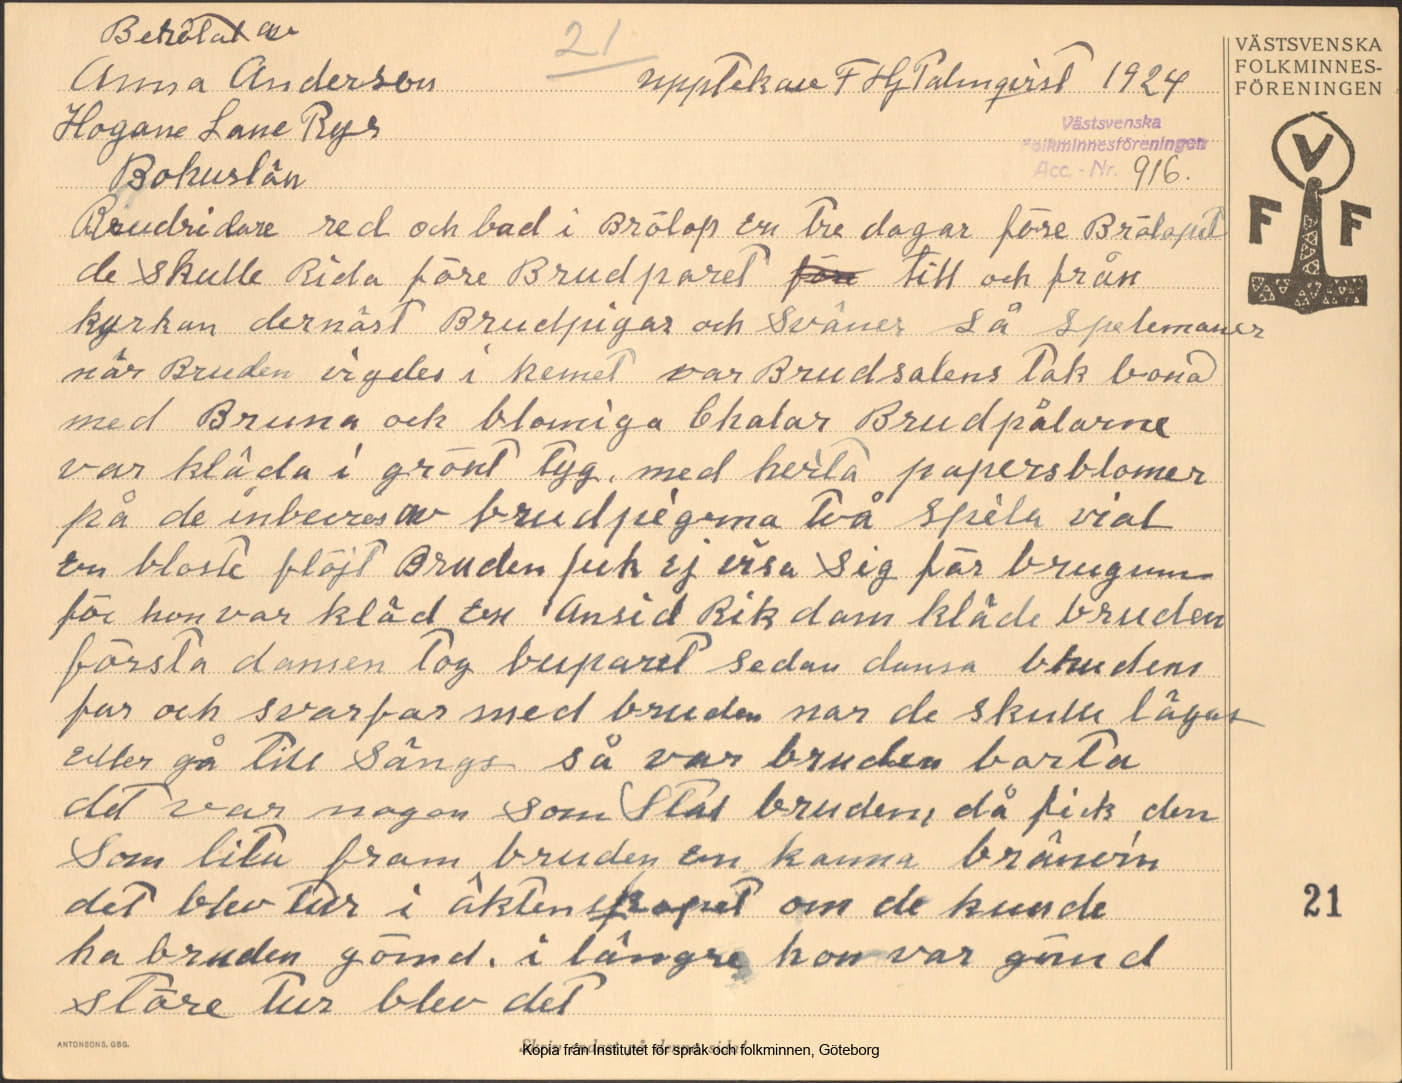 Berötat av
21
Anna Anderson
upptekan F Hj Palmqvist 1924
Hogane Lane Rys
Bohuslän
VÄSTSVENSKA
FOLKMINNES-
FÖRENINGEN
V
F F
Västsvenska
Folkminnesföreningen
Acc. - Nr. 916.
Brudridare red och bad i Brölop en tre dagar före Brölopet
de skulle Rida före Brudparet före till och från
kyrkan dernäst Brudpigar och Sväner Så Spelemaner
när Bruden vigdes i hemet var Brudsalens Tak bona
med Bruna och blomiga Chalar Brudpålarne
var kläda i grönt Tyg, med heita papersblomer
på de inbeures av brudpigerna två Spela viol
en bloste flöjt Bruden fick ej visa Sig för brugum
för hon var kläd en Ansid Rik dam kläde bruden
första dansen Tog buparet sedan dansa brudens
far och svarfar med bruden nar de skulle lägas
eller gå till Sängs så var bruden borta
det var nagon som Stal bruden, då fick den
Som lita fram bruden en kanna bränvin
det blev tur i äktenskapet om de kunde
ha bruden gömd. i längre hon var gömd
störe tur blev det
21
ANTONSONS, GBG.
Skriv endast på denna sida!
Kopia från Institutet för språk och folkminnen, Göteborg